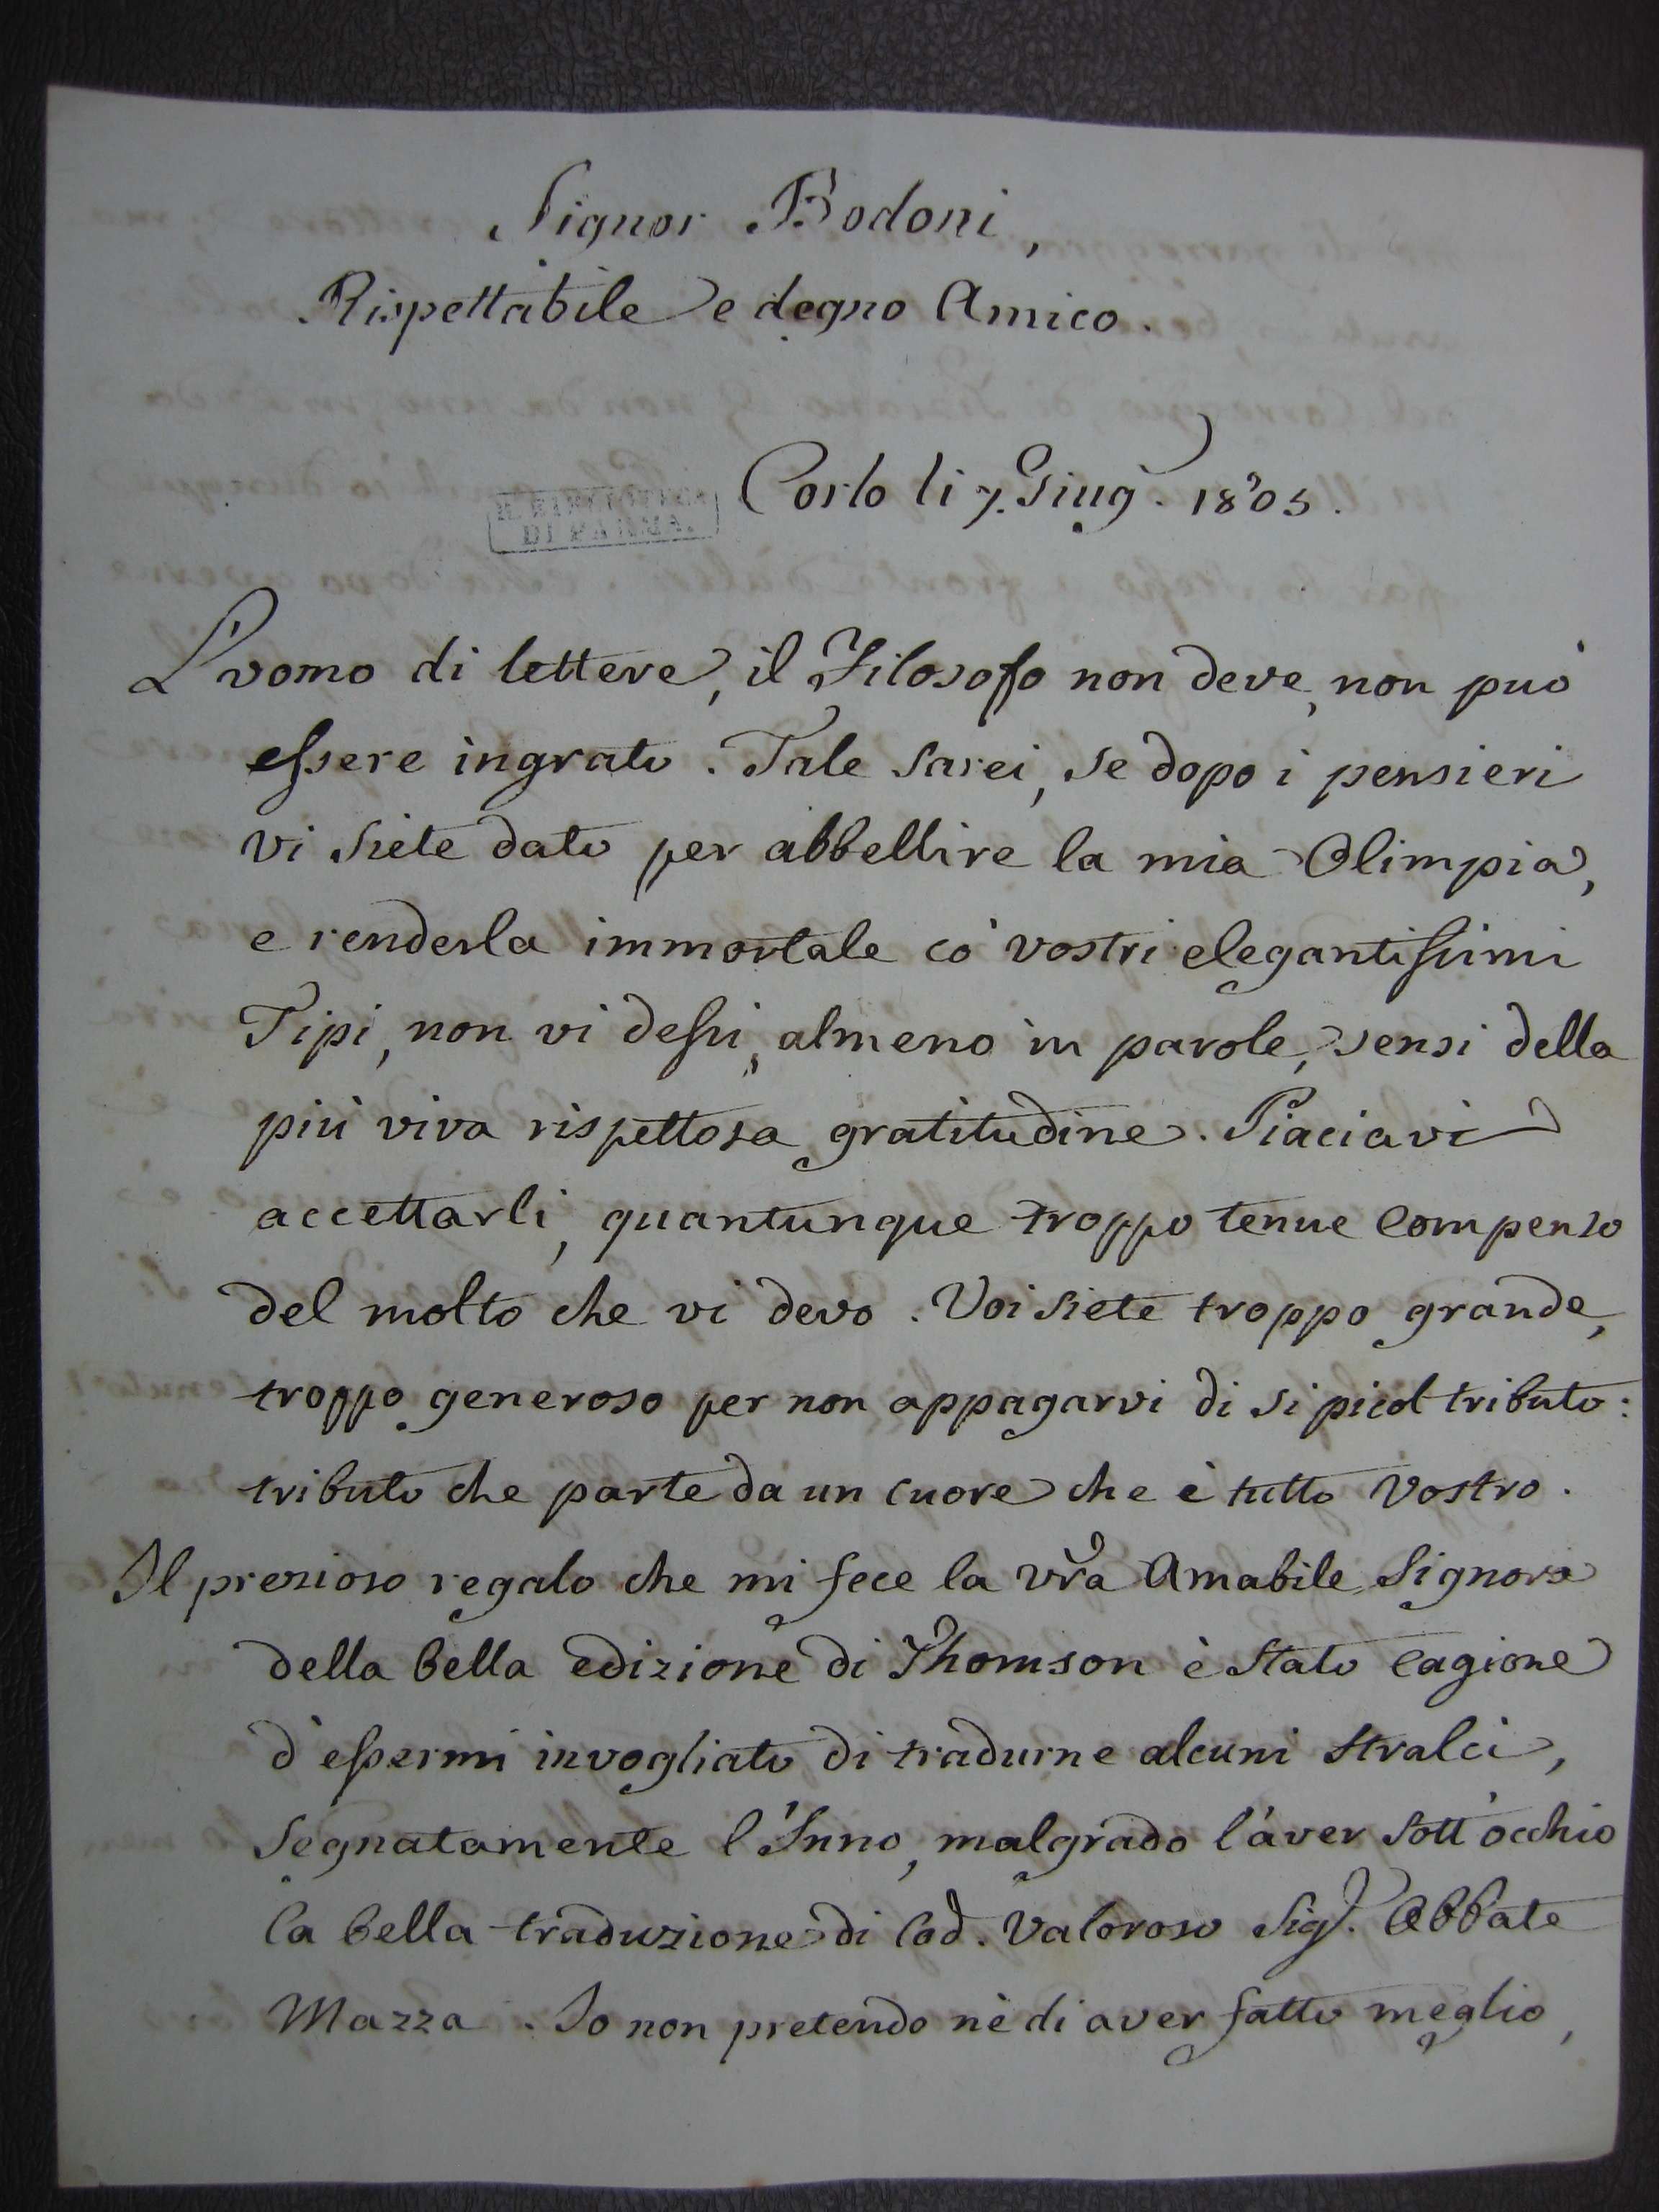 Signor Bodoni,
Rispettabile e degno Amico.
Corlo li 7. Giug. 1805.
R. BIBLIOTECA
DI PARMA.
L'uomo di lettere, il Filosofo non deve, non può
essere ingrato. Tale sarei, se dopo i pensieri
vi siete dato per abbellire la mia Olimpia,
e renderla immortale co' vostri elegantissimi
Tipi, non vi dessi, almeno in parole, sensi della
più viva rispettosa gratitudine. Piaciavi
accettarli, quantunque troppo tenue compenso
del molto che vi devo. Voi siete troppo grande,
troppo generoso per non appagarvi di si picol tributo:
tributo che parte da un cuore che è tutto Vostro.
Il prezioso regalo che mi fece la vr̃a Amabile Signora
della bella edizione di Thomson è stato cagione
d'essermi invogliato di tradurne alcuni stralci,
segnatamente l'Inno, malgrado l'aver sott'occhio
la bella traduzione di cod. valoroso Sig.r Abbate
Mazza. Io non pretendo nè di aver fatto meglio,